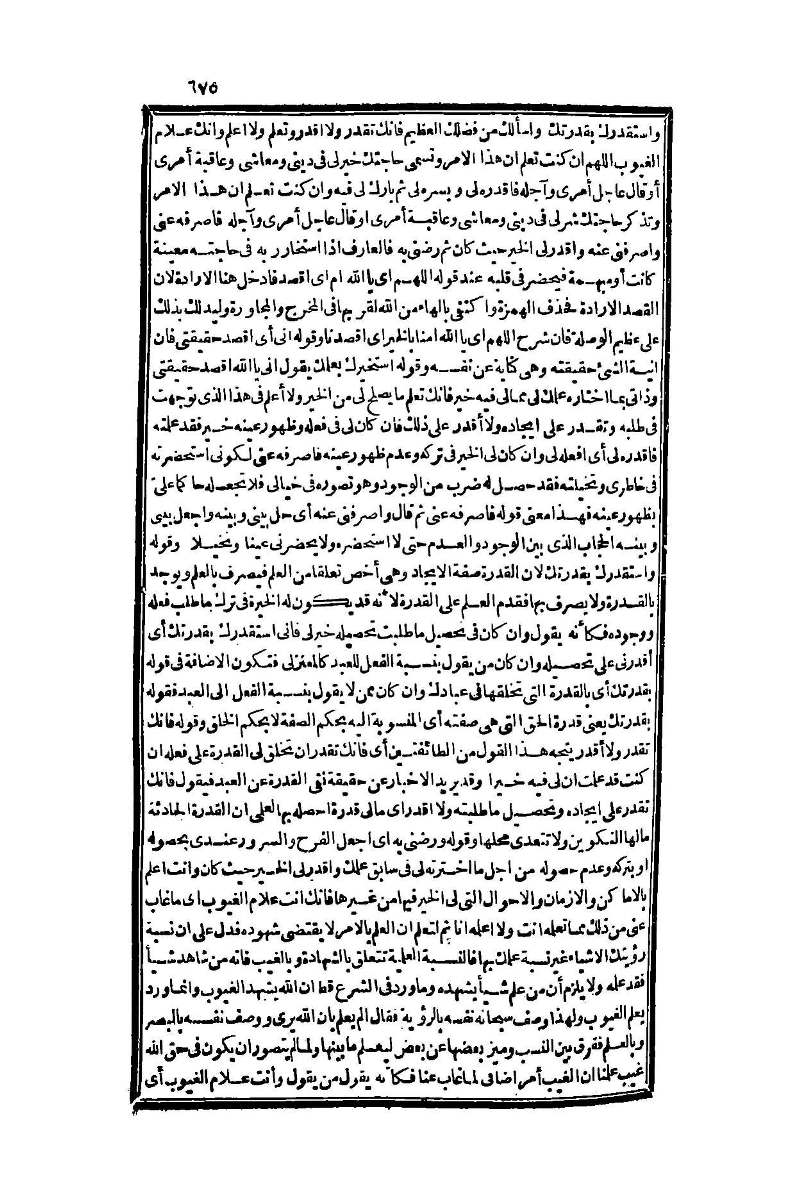 ٦٧٥
واستقدرك بقدرتك واسألك من فضلك العظيم فانك تقدر ولا اقدر وتعلم ولا اعلم وانك علام
الغيوب اللهم ان كنت تعلم ان هذا الامر وتسمى حاجتك خير لى فى دينى ومعاشى وعاقبة أمرى
أو قال عاجل أمرى وآجله فاقدره لى ويسره لى ثم بارك لى فيه وان كنت تعلم ان هذا الامر
وتذكر حاجتك شر لى فى دينى ومعاشى وعاقبة أمرى او قال عاجل أمرى وآجله فاصرفه عنى
واصرفنى عنه واقدر لى الخير حيث كان ثم رضنى به فالعارف اذا استخار ربه فى حاجته معينة
كانت أو مبهمة فيحضر فى قلبه عند قوله اللهم اى يا الله ام اى اقصد فادخل هنا الارادة لان
القصد الارادة فحذف الهمزة واكتفى بالهاء من الله لقربها فى المخرج والمجاورة وليدلك بذلك
على عظيم الوصلة فان شرح اللهم اى يا الله امنا بالخير اى اقصدنا وقوله انى أى اقصد حقيقتى فان
انية الشئ حقيقته وهى كناية عن نفسه وقوله استخيرك بعلمك يقول انى يا الله اقصد حقيقتى
وذاتى بما اختاره علمك لى مما لى فيه خير فانك تعلم ما يصلح لى من الخير ولا أعلم فى هذا الذى توجهت
فى طلبه وتقدر على ايجاده ولا أقدر على ذلك فان كان لى فى فعله وظهور عينه خير فقد علمته
فاقدره لى أى افعله لى وان كان لى الخير فى تركه وعدم ظهور عينه فاصرفه عنى لكونى استحضرته
فى خاطرى وتخيلته فقد حصل له ضرب من الوجود وهو تصوره فى خيالى فلا تجعله حاكما علىّ
بظهور عينه فهذا معنى قوله فاصرفه عنى ثم قال واصرفنى عنه أى حل بينى وبينه واجعل بينى
وبينه الحجاب الذى بين الوجود والعدم حتى لا استحضره ولا يحضرنى عينا وتخيلا وقوله
واستقدرك بقدرتك لان القدرة صفة الايجاد وهى أخص تعلقا من العلم فيصرف بالعلم ويوجد
بالقدرة ولا يصرف بها فقدم العلم على القدرة لأنه قد يكون له الخيرة فى ترك ما طلب فعله
ووجوده فكأنه يقول وان كان فى تحصيل ما طلبت تحصيله خير لى فانى استقدرك بقدرتك أى
أقدرنى على تحصيله وان كان من يقول بنسبة الفعل للعبد كالمعتزلى فتكون الاضافة فى قوله
بقدرتك أى بالقدرة التى تخلقها فى عبادك وان كان ممن لا يقول بنسبة الفعل الى العبد فقوله
بقدرتك يعنى قدرة الحق التى هى صفته أى المنسوبة اليه بحكم الصفة لا بحكم الخلق وقوله فانك
تقدر ولا أقدر يتجه هذا القول من الطائفتين أى فانك تقدر ان تخلق لى القدرة على فعله ان
كنت قد علمت ان لى فيه خيرا وقد يريد الاخبار عن حقيقة نفى القدرة عن العبد فيقول فانك
تقدر على ايجاده وتحصيل ما طلبته ولا اقدر اى مالى قدرة احصله بها العلمى ان القدرة الحادثة
مالها التكوين ولا تتعدى محلها وقوله ورضنى به اى اجعل الفرح والسرور عندى بحصوله
او بتركه وعدم حصوله من اجل ما اخترته لى فى سابق علمك واقدر لى الخير حيث كان وانت اعلم
بالاماكن والازمان والاحوال التى لى الخير فيها من غيرها فانك انت علام الغيوب اى ما غاب
عنى من ذلك مما تعلمه انت ولا اعلمه انا ثم لتعلم ان العلم بالامر لا يقتضى شهوده فدل على ان نسبة
رؤيتك الاشياء غير نسبة علمك بها فالنسبة العلمية تتعلق بالشهادة وبالغيب فانه من شاهد شيأ
فقد علمه ولا يلزم أن من علم شيأ يشهده وما ورد فى الشرع قط ان الله يشهد الغيوب وانما ورد
يعلم الغيوب ولهذا وصف سبحانه نفسه بالرؤية فقال الم يعلم بان الله يرى ووصف نفسه بالبصر
وبالعلم ففرق بين النسب وميز بعضها عن بعض ليعلم ما بينها ولما لم يتصور ان يكون فى حق الله
غيب علمنا ان الغيب أمر اضافى لما غاب عنا فكأنه يقول من يقول وأنت علام الغيوب أى